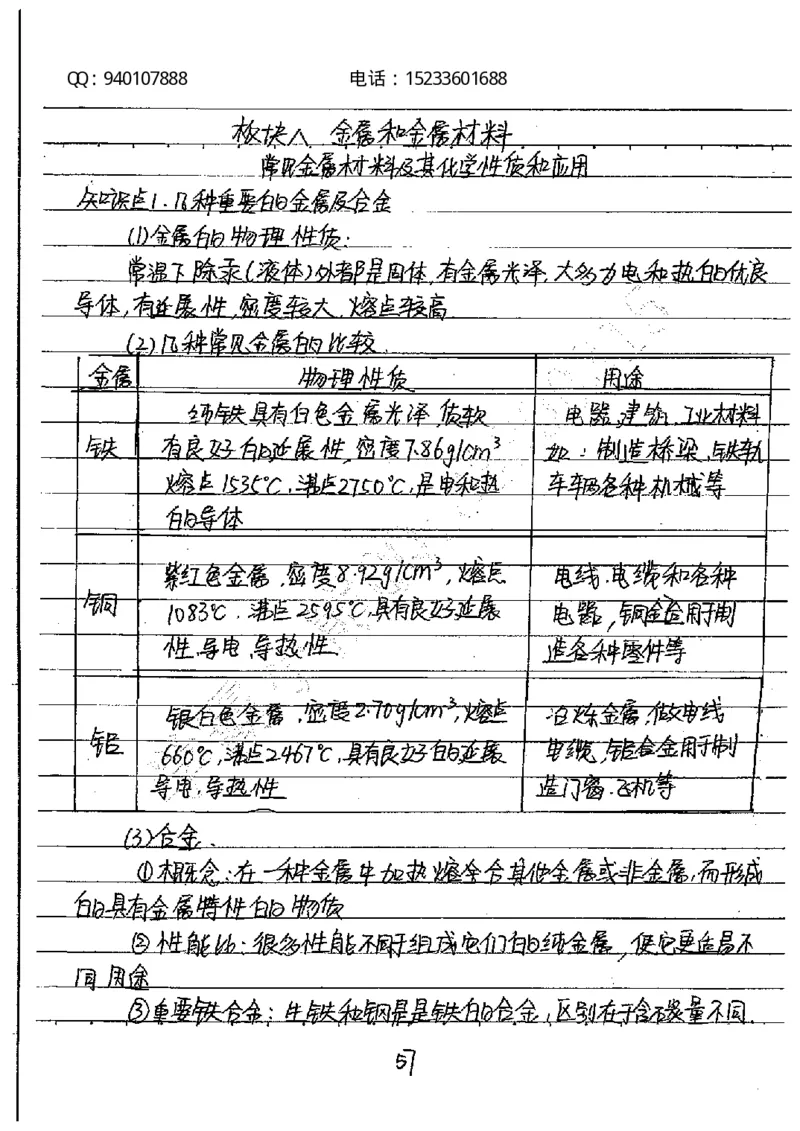 QQ：940107888 电话：15233601688
板块八 金属和金属材料
常见金属材料及其化学性质和应用
知识点1.几种重要的金属及合金
(1)金属的物理性质：
常温下除汞(液体)外都是固体,有金属光泽,大多为电和热的优良
导体,有延展性,密度较大,熔点较高
(2)几种常见金属的比较
金属 物理性质 用途
铁
纯铁具有白色金属光泽,质软
有良好的延展性,密度7.86g/cm³
熔点1535℃,沸点2750℃,是电和热
的导体
电器,建筑,工业材料
如：制造桥梁,铁轨
车辆各种机械等
铜
紫红色金属,密度8.92g/cm³,熔点
1083℃,沸点2595℃,具有良好延展
性,导电,导热性
电线.电缆和各种
电器,铜合金用于制
造各种零件等
铝
银白色金属,密度2.70g/cm³,熔点
660℃,沸点2467℃,具有良好的延展
导电,导热性
冶炼金属,做电线
电缆,铝合金用于制
造门窗.飞机等
(3)合金.
①概念：在一种金属中加热熔合其他金属或非金属,而形成
的具有金属特性的物质
②性能比：很多性能不同于组成它们的纯金属,使它更适易不
同用途
③重要铁合金：生铁和钢是是铁的合金,区别在于含碳量不同.
57